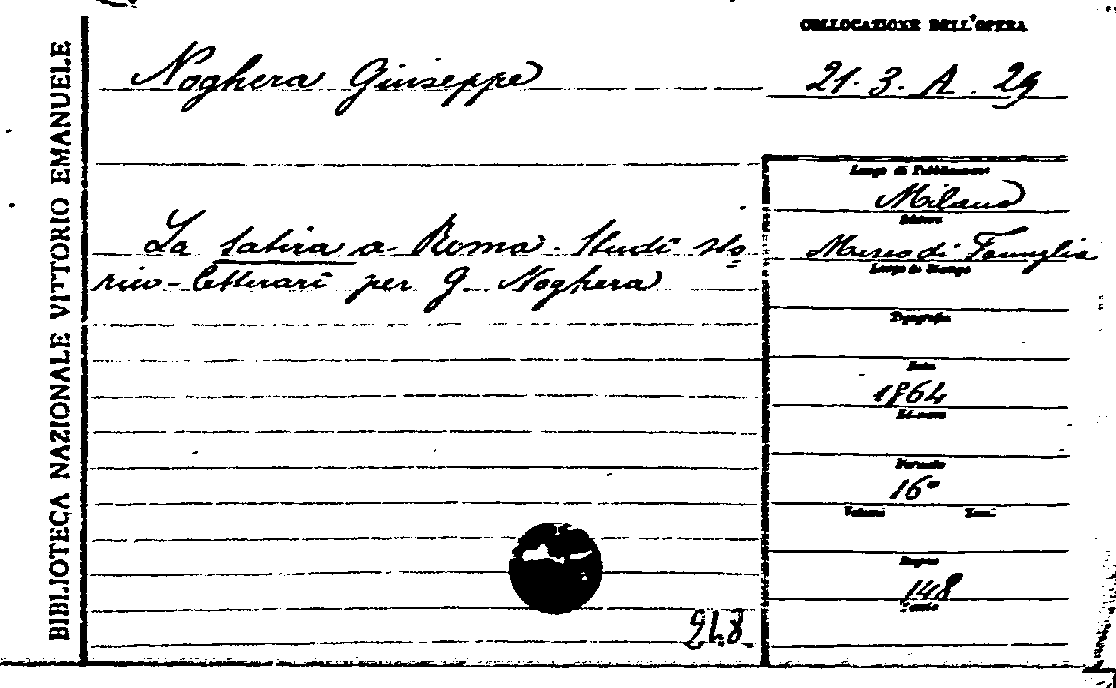 BIBLIOTECA NAZIONALE VITTORIO EMANUELE
COLLOCAZIONE DELL'OPERA
Noghera Giuseppe
21. 3. A. 29
Luogo di Pubblicazione
Milano
Editore
La Satira a Roma. Studî sto
Museo di Famiglia
rico-letterarî per G. Noghera
Luogo di Stampa
Tipografia
Data
1864
Edizione
Formato
16°
Volumi Tomi
Pagine
148